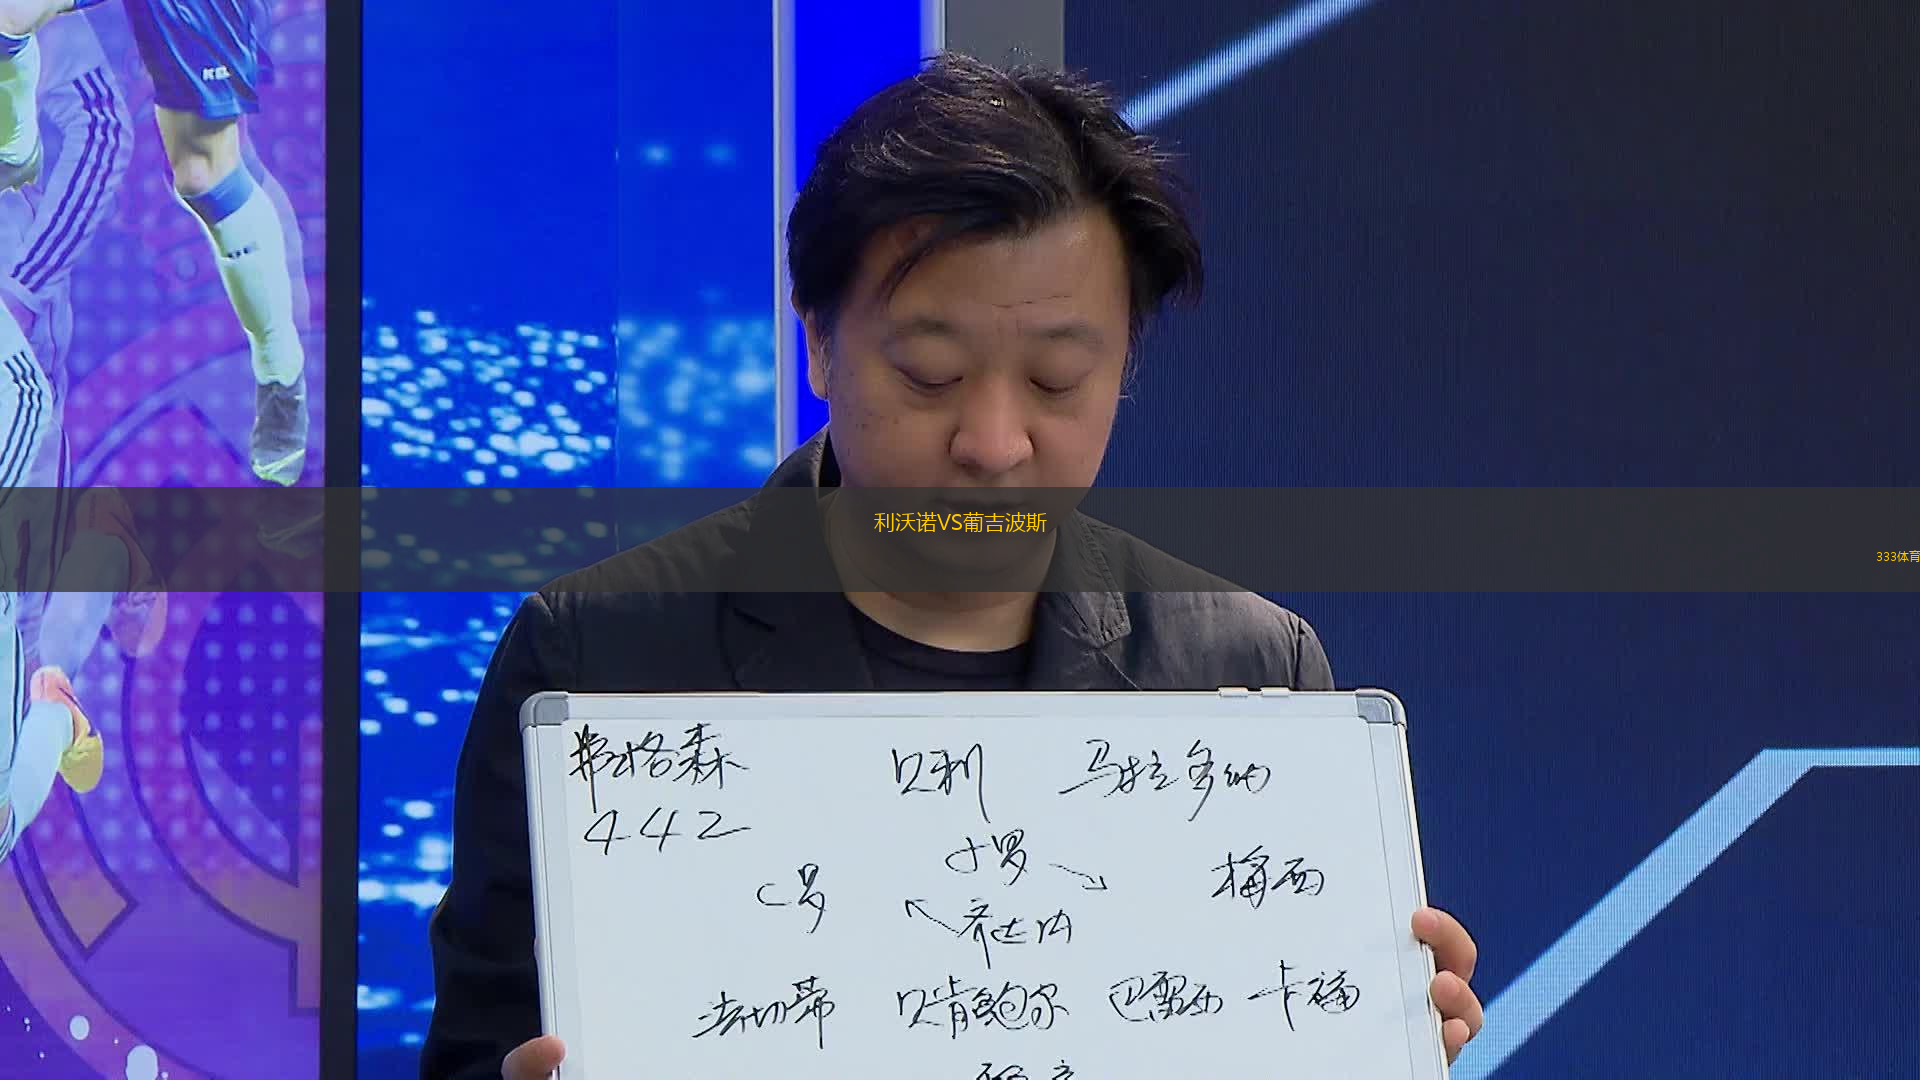 利沃诺VS葡吉波斯
333体育
弗格森 贝利 马拉多纳
442
小罗
C罗 梅西
齐达内
法切蒂 贝肯鲍尔 巴雷西 卡福